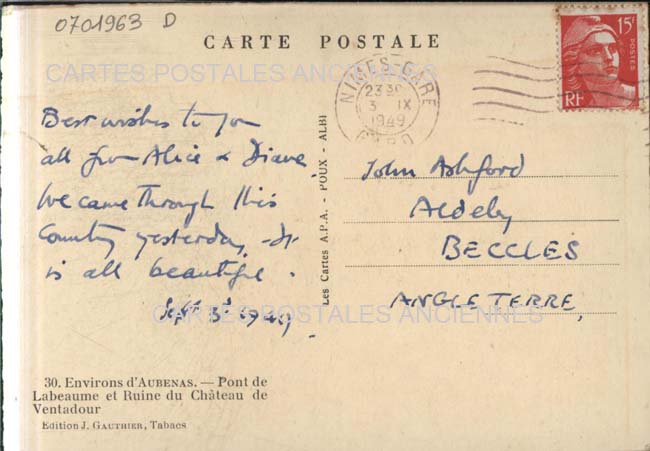 0701963 D
CARTE POSTALE
CARTES POSTALES ANCIENNES
15F
POSTES
RF
NIMES-GARE
23 30
3 IX
1949
GARD
Best wishes to you
all from Alice & Diane.
We came through this
Country yesterday. It
is all beautiful.
Sept 3rd 1949.
Les Cartes A.P.A. - POUX - ALBI
John Ashford
Aldeby
BECCLES
ANGLETERRE,
CARTES POSTALES ANCIENNES
30. Environs d'AUBENAS. — Pont de
Labeaume et Ruine du Château de
Ventadour
Edition J. GAUTHIER, Tabacs